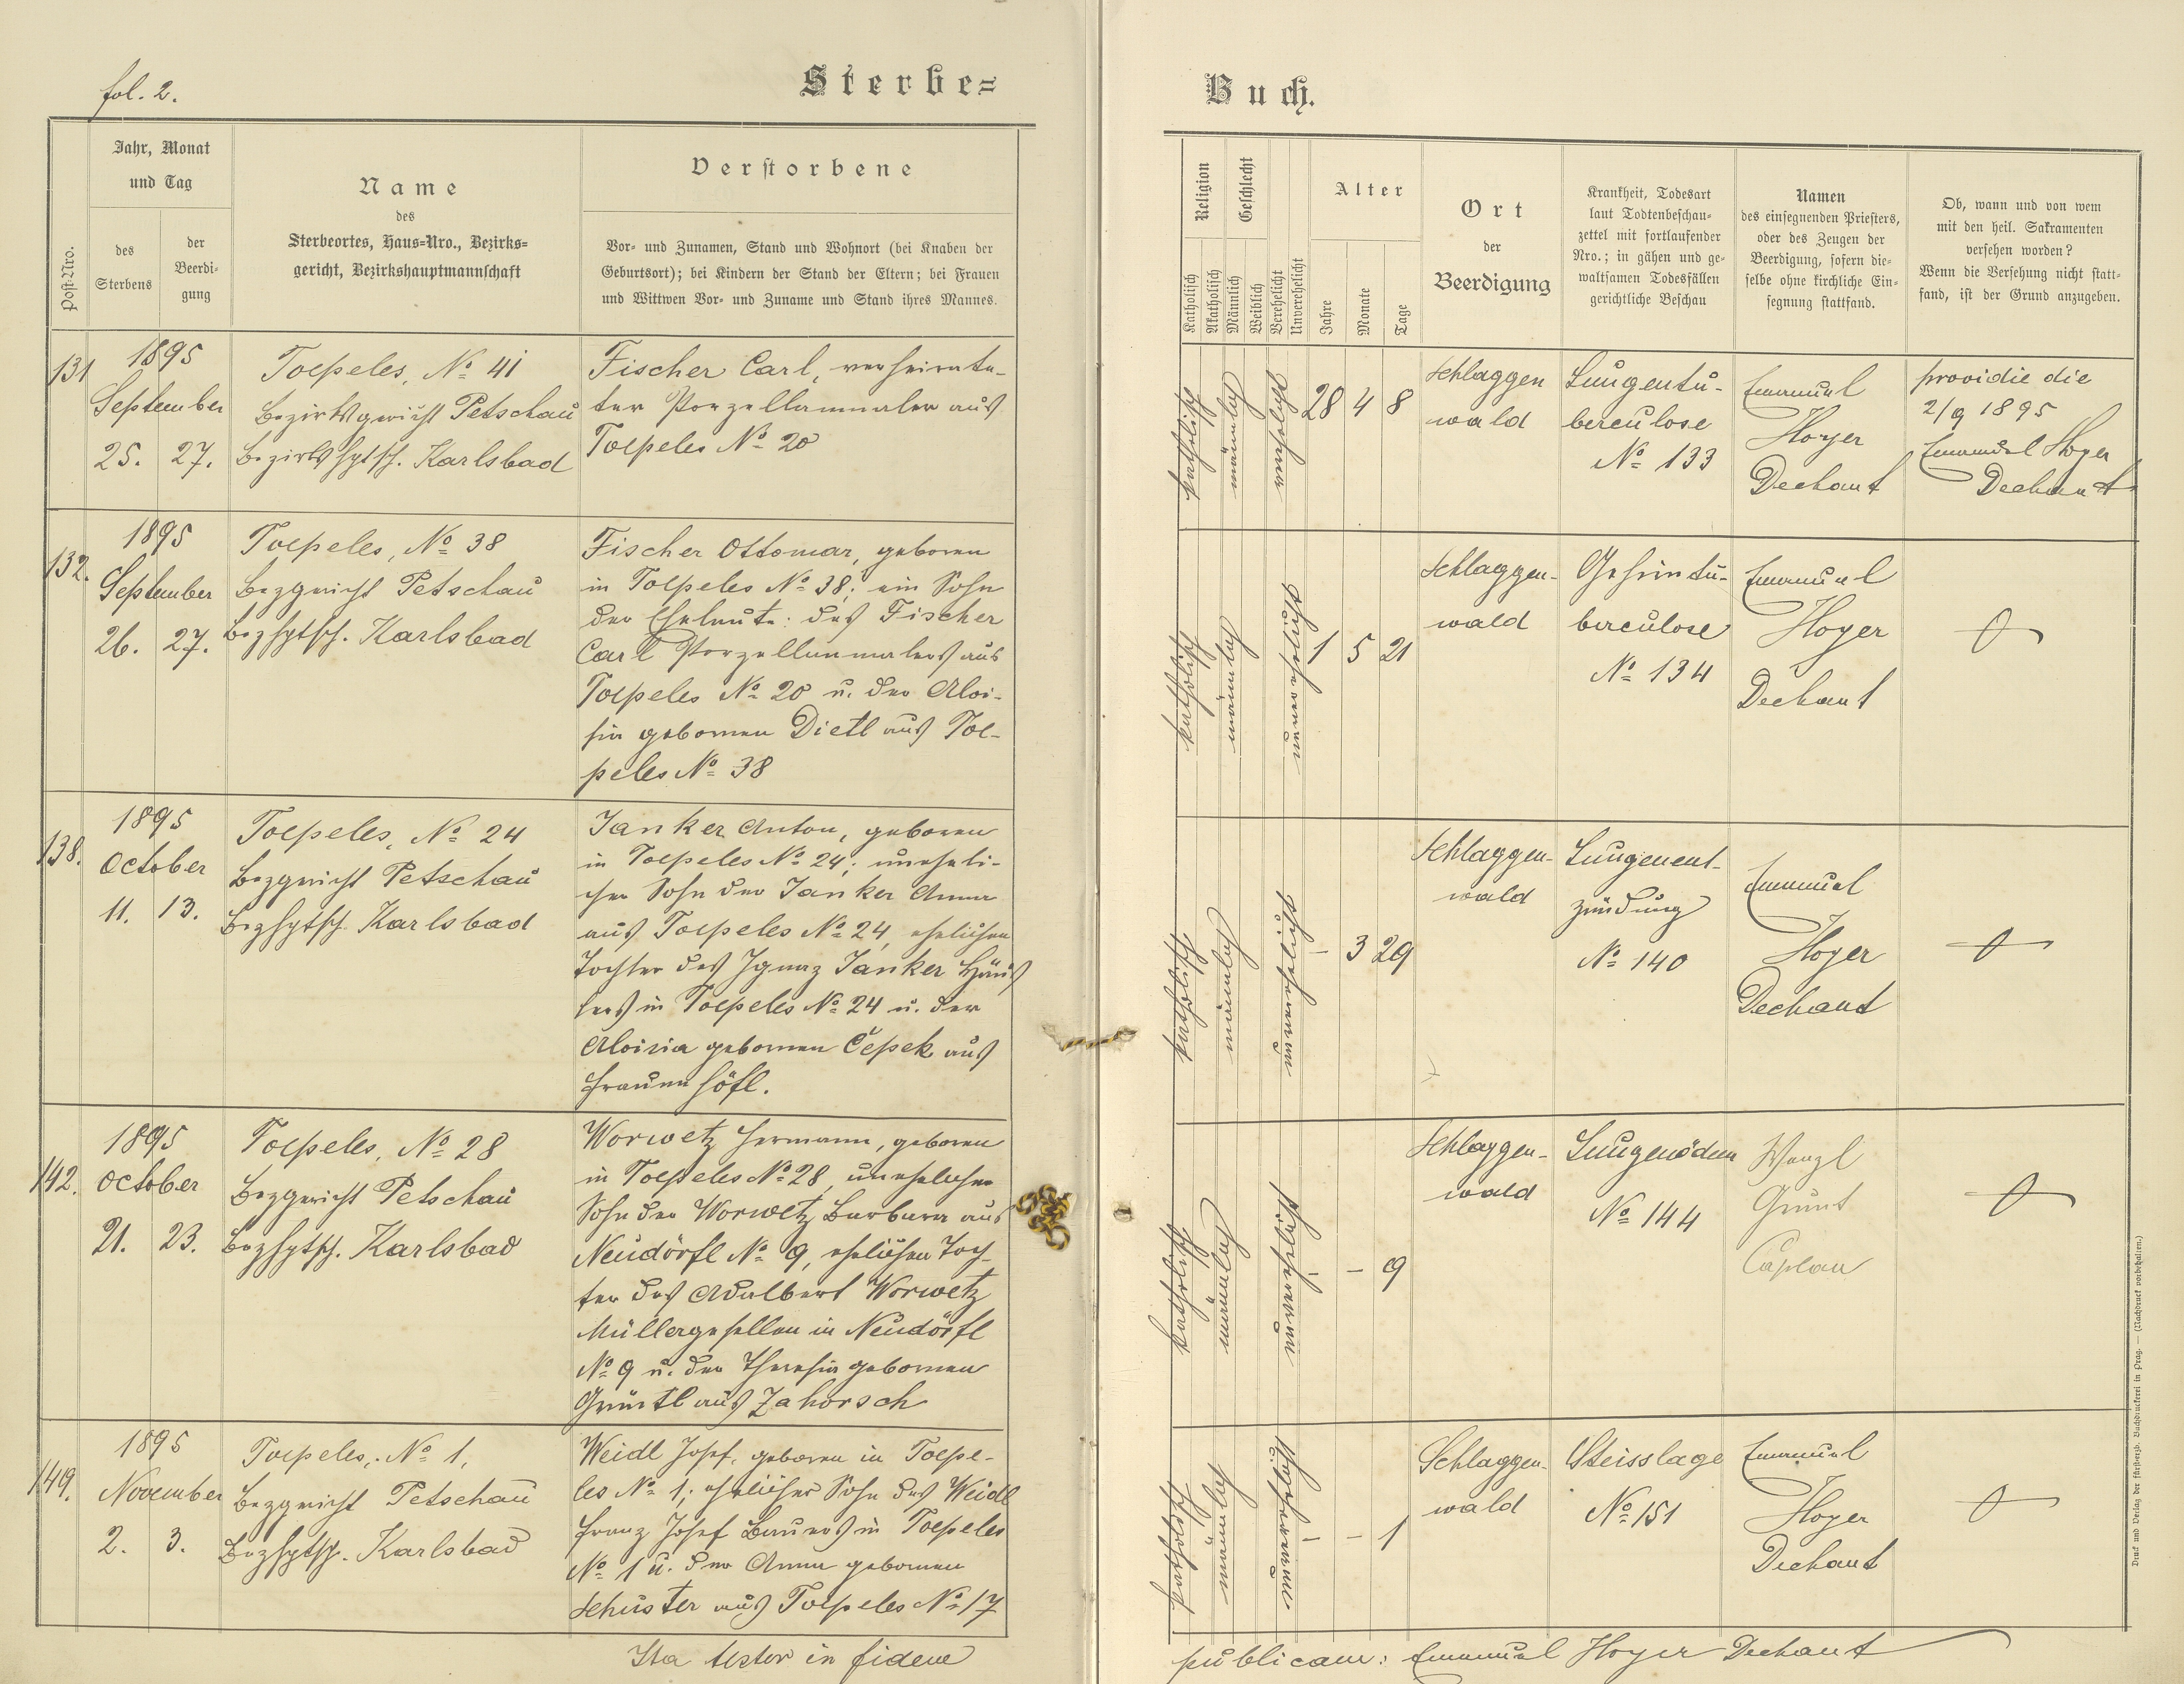 fol. 2.
Sterbe=
Buch.
Post-Nro.
Jahr, Monat
und Tag
des
Sterbens
der
Beerdi-
gung
Name
des
Sterbeortes, Haus=Nro., Bezirks=
gericht, Bezirkshauptmannschaft
Verstorbene
Vor- und Zunamen, Stand und Wohnort (bei Knaben der
Geburtsort); bei Kindern der Stand der Eltern; bei Frauen
und Wittwen Vor- und Zuname und Stand ihres Mannes.
Religion
Katholisch
Akatholisch
Geschlecht
Männlich
Weiblich
Verehelicht
Unverehelicht
Alter
Jahre
Monate
Tage
Ort
der
Beerdigung
Krankheit, Todesart
laut Todtenbeschau-
zettel mit fortlaufender
Nro.; in gähen und ge-
waltsamen Todesfällen
gerichtliche Beschau
Namen
des einsegnenden Priesters,
oder des Zeugen der
Beerdigung, sofern die-
selbe ohne kirchliche Ein-
segnung stattfand.
Ob, wann und von wem
mit den heil. Sakramenten
versehen worden?
Wenn die Versehung nicht statt-
fand, ist der Grund anzugeben.
131
1895
September
25. 27.
Toepeles, No 41
Bezirksgericht Petschau
Bezirkshptsch. Karlsbad
Fischer Carl, verheirate-
ter Porzellanmaler aus
Toepeles No 20
katholisch
männlich
verehelicht
28 4 8
Schlaggen
wald
Lungentu-
berculose
No 133
Emanuel
Hoyer
Dechant
providie die
2/9 1895
Emanuel Hoyer
Dechant
132.
1895
September
26. 27.
Toepeles, No 38
Bezgericht Petschau
Bezhptsch. Karlsbad
Fischer Ottomar, geboren
in Toepeles No 38; ein Sohn
der Eheleute: des Fischer
Carl Porzellanmalers aus
Toepeles No 20 u. der Aloi-
sia gebornen Dietl aus Toe-
peles No 38
katholisch
männlich
unverehelicht
1 5 21
Schlaggen-
wald
Gehirntu-
berculose
No 134
Emanuel
Hoyer
Dechant
138.
1895
October
11. 13.
Toepeles, No 24
Bezgericht Petschau
Bezhptsch. Karlsbad
Janker Anton, geboren
in Toepeles No 24; uneheli-
cher Sohn der Janker Anna
aus Toepeles No 24, ehelichen
Tochter des Ignaz Janker Häus
lers in Toepeles No 24 u. der
Aloisia gebornen Čepek aus
Frauenhöfl.
katholisch
männlich
unverehelicht
– 3 29
Schlaggen-
wald
Lungenent-
zündung
No 140
Emanuel
Hoyer
Dechant
142.
1895
October
21. 23.
Toepeles, No 28
Bezgericht Petschau
Bezhptsch. Karlsbad
Worwetz Hermann, geboren
in Toepeles No 28, unehelicher
Sohn der Worwetz Barbara aus
Neudörfl No 9, ehelichen Toch-
ter des Adalbert Worwetz
Müllergesellen in Neudörfl
No 9 u. der Theresia gebornen
aus Zahorsch
katholisch
männlich
unverehelicht
– – 9
Schlaggen-
wald
Lungenödem
No 144
Wenzl
Caplan
149.
1895
November
2. 3.
Toepeles, No 1,
Bezgericht Petschau
Bezhptsch. Karlsbad
Weidl Josef, geboren in Toepe-
les No 1; ehelicher Sohn des Weidl
Franz Josef Bauers in Toepeles
No 1 u. der Anna gebornen
Schuster aus Toepeles No 17
katholisch
männlich
unverehelicht
– – 1
Schlaggen-
wald
Steisslage
No 151
Emanuel
Hoyer
Dechant
Ita testor in fidem
publicam: Emanuel Hoyer Dechant
Druck und Verlag der fürsterzb. Buchdruckerei in Prag. — (Nachdruck vorbehalten.)